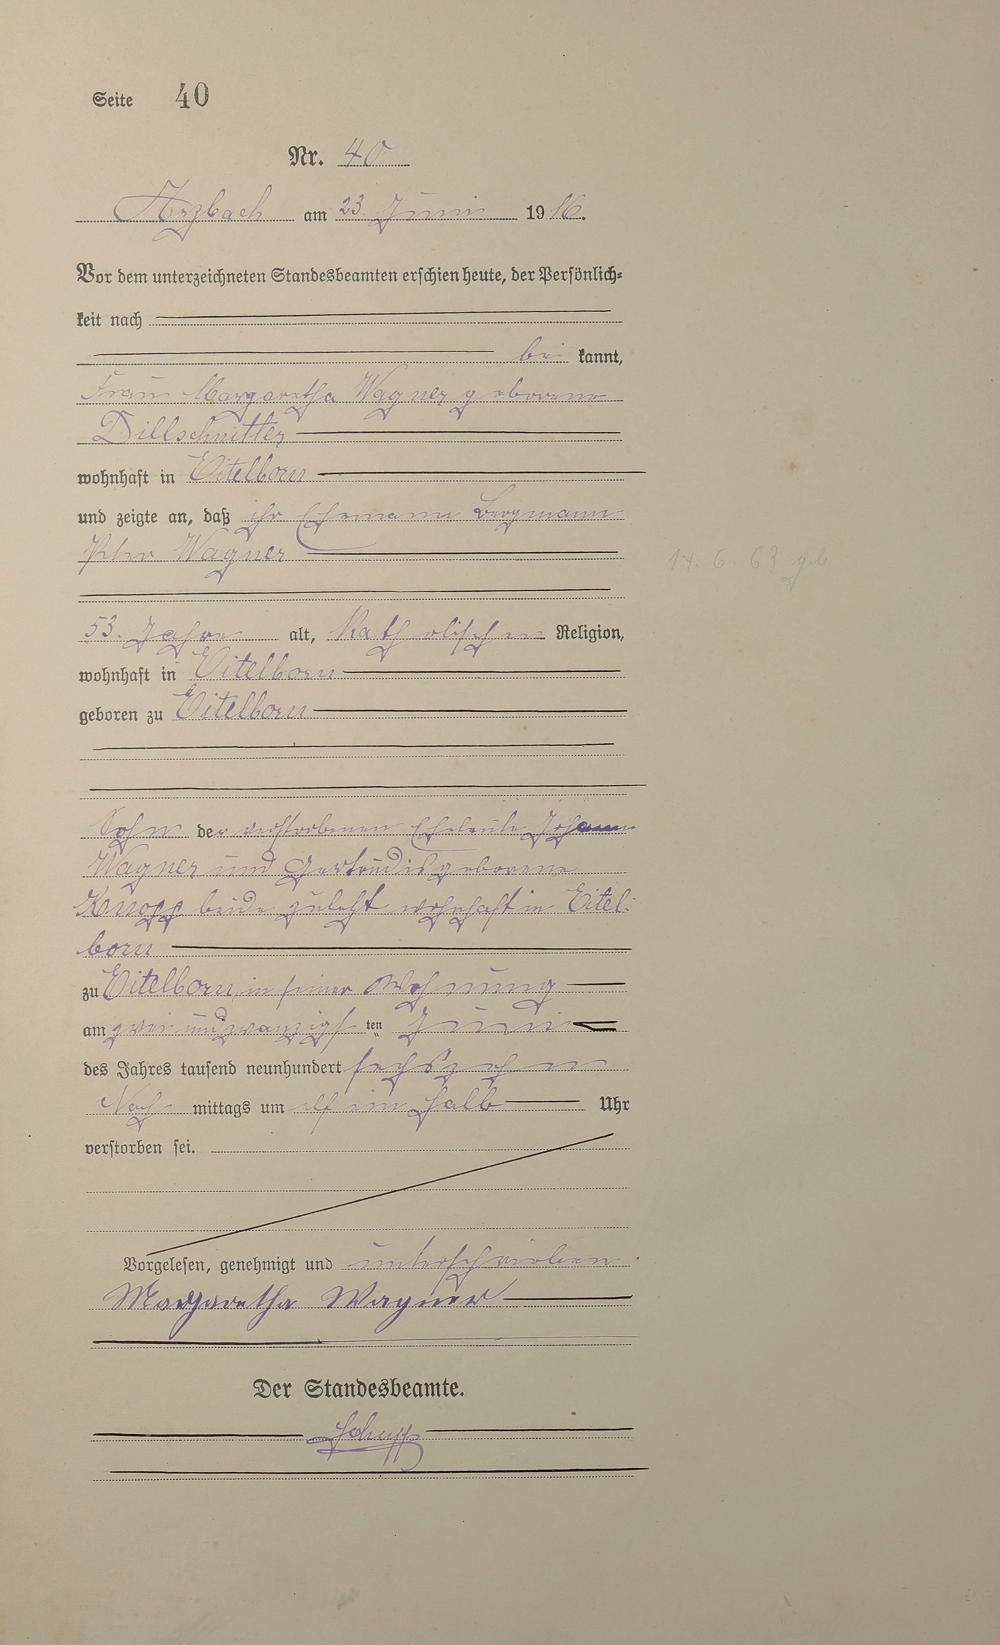 Seite 40
Nr. 40
Arzbach am 23 Juni 1916.
Vor dem unterzeichneten Standesbeamten erschien heute, der Persönlich=
keit nach
be kannt,
Frau Margaretha Wagner geborene
Dillschnitter
wohnhaft in Eitelborn
und zeigte an, daß ihr Ehemann Bergmann
Peter Wagner
14. 6. 63 geb
53. Jahre alt, Katholischen Religion,
wohnhaft in Eitelborn
geboren zu Eitelborn
Sohn der verstorbenen Eheleute Johann
Wagner und Gertrudis geborene
Knopp beide zuletzt wohnhaft in Eitel:
born
zu Eitelborn, in seiner Wohnung
am zwei und zwanzigs ten Juni
des Jahres tausend neunhundert sechszehn
Nach mittags um elf ein halb Uhr
verstorben sei.
Vorgelesen, genehmigt und unterschrieben
Margaretha Wagner
Der Standesbeamte.